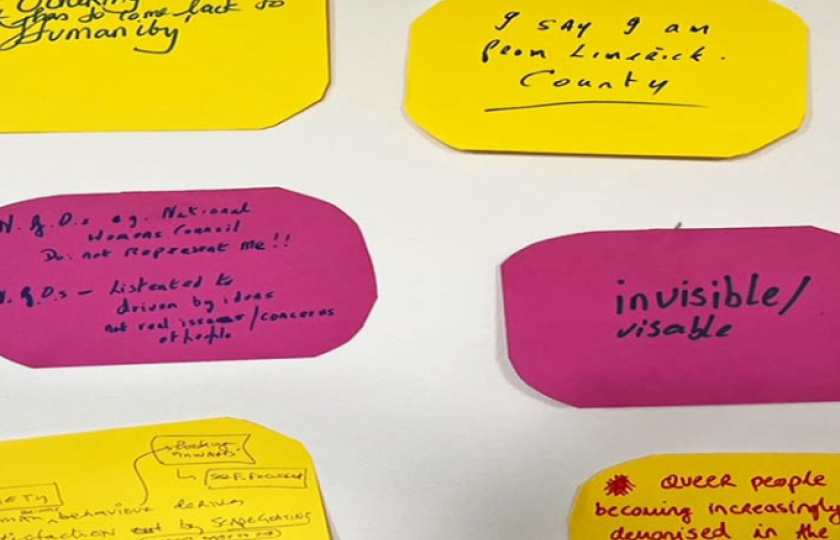 has to come back to
Humanity,
I SAY I am
from Limerick.
County
N.G.O.s e.g. National
Womens Council
Do not Represent me!!
N.G.O.s – Listented to
driven by ideas
not real issues/concerns
of People
invisible/
visable
Looking
INWARD.
SELF-FOCUSED
behaviour derives
by SCAPEGOATING
QUEER people
becoming increasingly
demonised in the